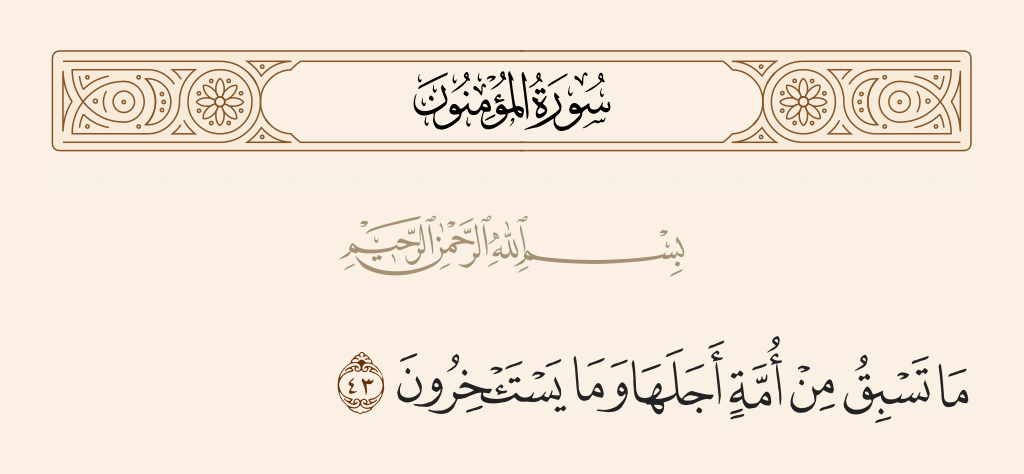 سُورَةُ المُؤْمِنُونَ
بِسْمِ ٱللَّهِ ٱلرَّحْمَٰنِ ٱلرَّحِيمِ
مَا تَسْبِقُ مِنْ أُمَّةٍ أَجَلَهَا وَمَا يَسْتَـْٔخِرُونَ ٤٣